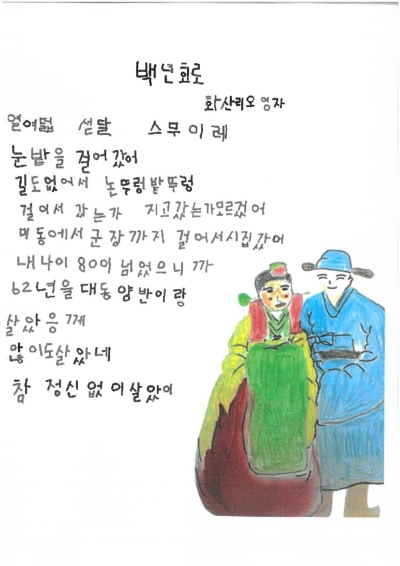 백년회로
화산리오영자
열여덟 섣달 스무이레
눈밭을 걸어갔어
길도없어서 논뚜렁밭뚜렁
걸어서 갔는가 지고갔는가모르겄어
미동에서군장까지 걸어서시집갔어
내나이80이넘었으니까
62년을대동양반이랑
살았응께
많이도살았네
참 정신없이살았어